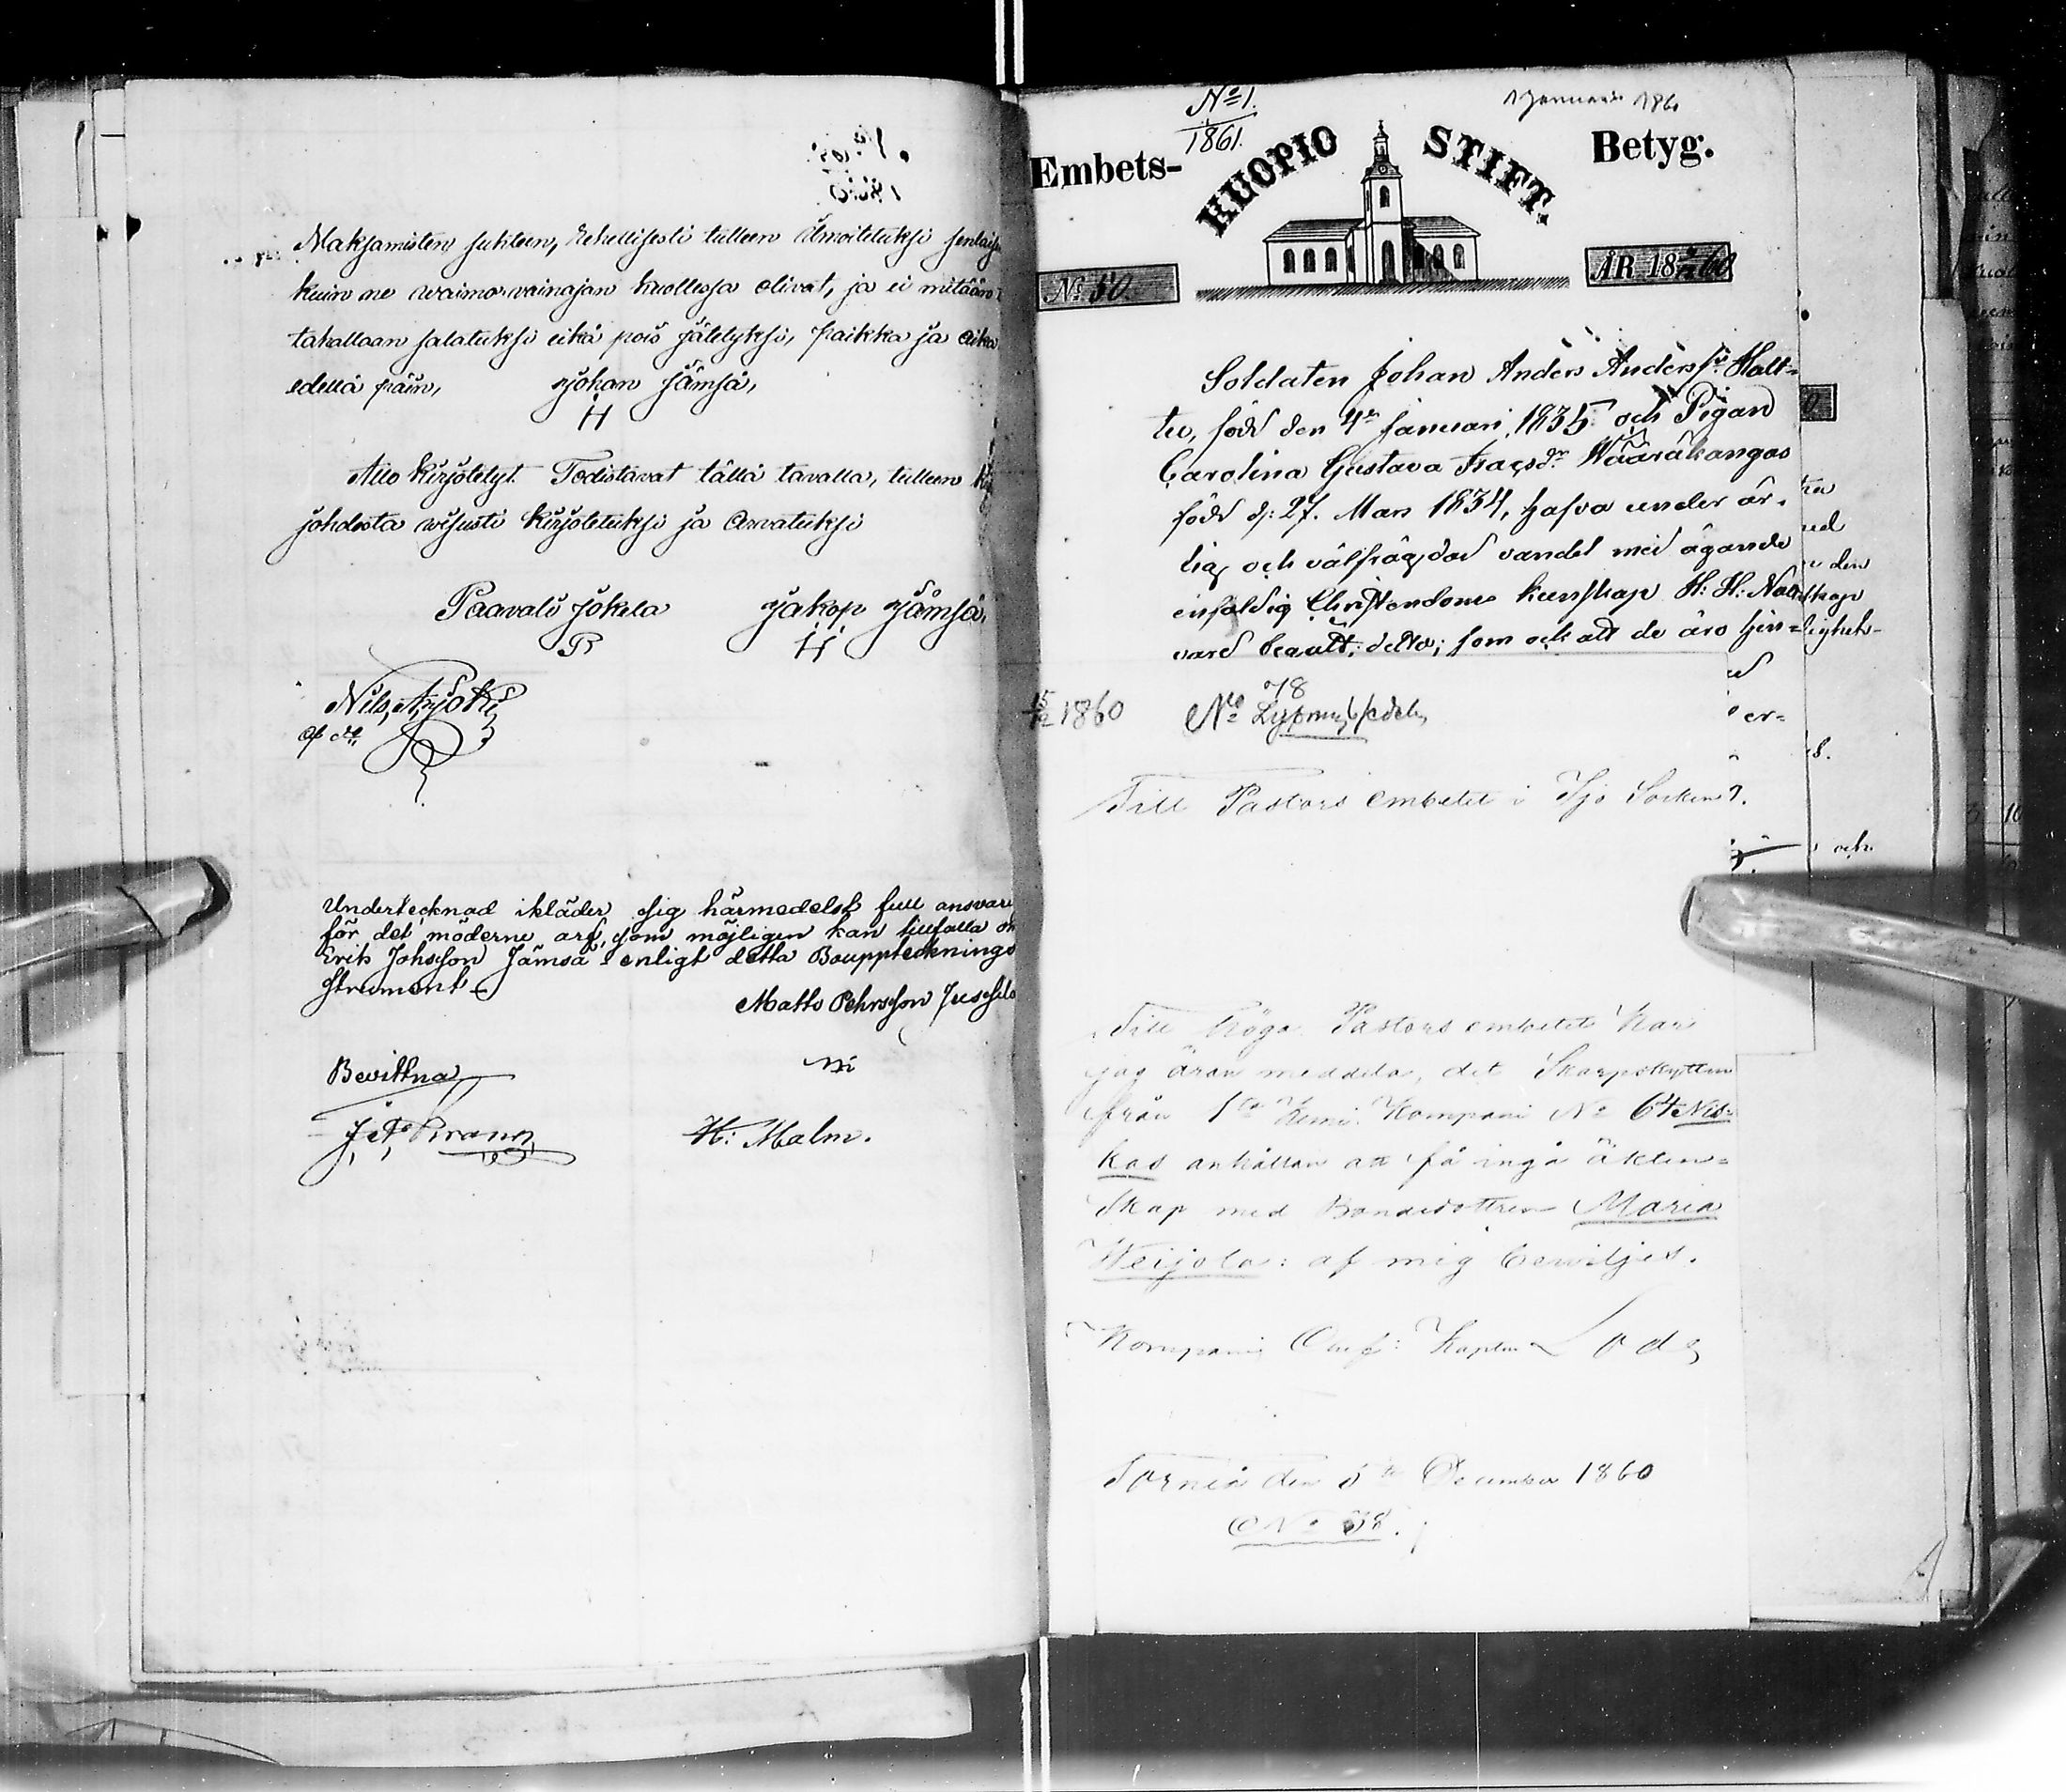 Maksamisten suhteen, Rehellisesti tulleen ilmoitetuksi senlaise
kuin ne waimo-vainajan kuollessa olivat, ja ei mitään
tahallaan salatuksi eikä pois jätetyksi, paikka ja aika
edellä päin, Johan Jämsä,
Allo kirjotetyt Todistavat tällä tavalla, tulleen
johdosta wisusti kirjotetuksi ja Arvatuksi
Paavali Jokela Jakop Jämsä,
Nils
Undertecknad ikläder sig härmedelst full ansvar
för det möderne arf, som möjligen kan tillfalla
Erik Johsson Jämsä enligt detta Bouppteckningo
strument.
Matts Pehrsson
Bevittna
H: Malm.
No 1.
1861.
1 Januari 186
Embets- KUOPIO STIFT. Betyg.
No 50. ÅR 18 60
Soldaten Johan Anders Anderss: Halt-
tu, född den 4de Januari 1835 och Pigan
Carolina Gustava Isacsdr Wääräkangas
född d: 27. Mars 1834, hafva under är-
lig och välfrägdad vandel med ägande
enfaldig Christendoms kunskap H: H: Natt-
vard begått; detta; som och att de äro hin-
1860 No 78
Till Pastors embetet i Ijo Socken
Till Höga Pastors embetet har
jag äran meddela, det Skarpskytten
från 1sta Kemi Kompani No 64 Nis-
kas anhållan att få ingå äkten-
skap med Bondedottren Maria
Weijola: af mig bewiljes.
Kompani Kapten
Torneå den 5te December 1860
No 38.